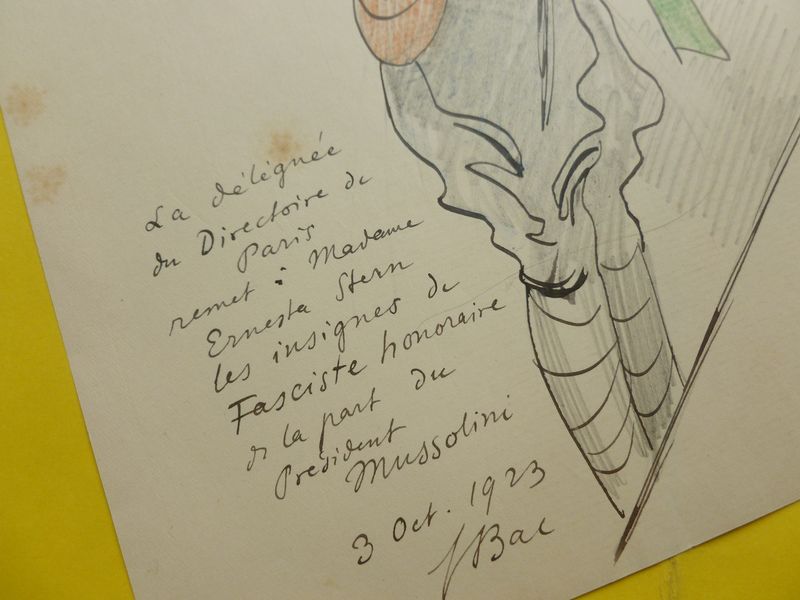 La déléguée
du Directoire de
Paris
remet à Madame
Ernesta Stern
les insignes de
Fasciste honoraire
de la part du
Président
Mussolini
3 Oct. 1923
FBac